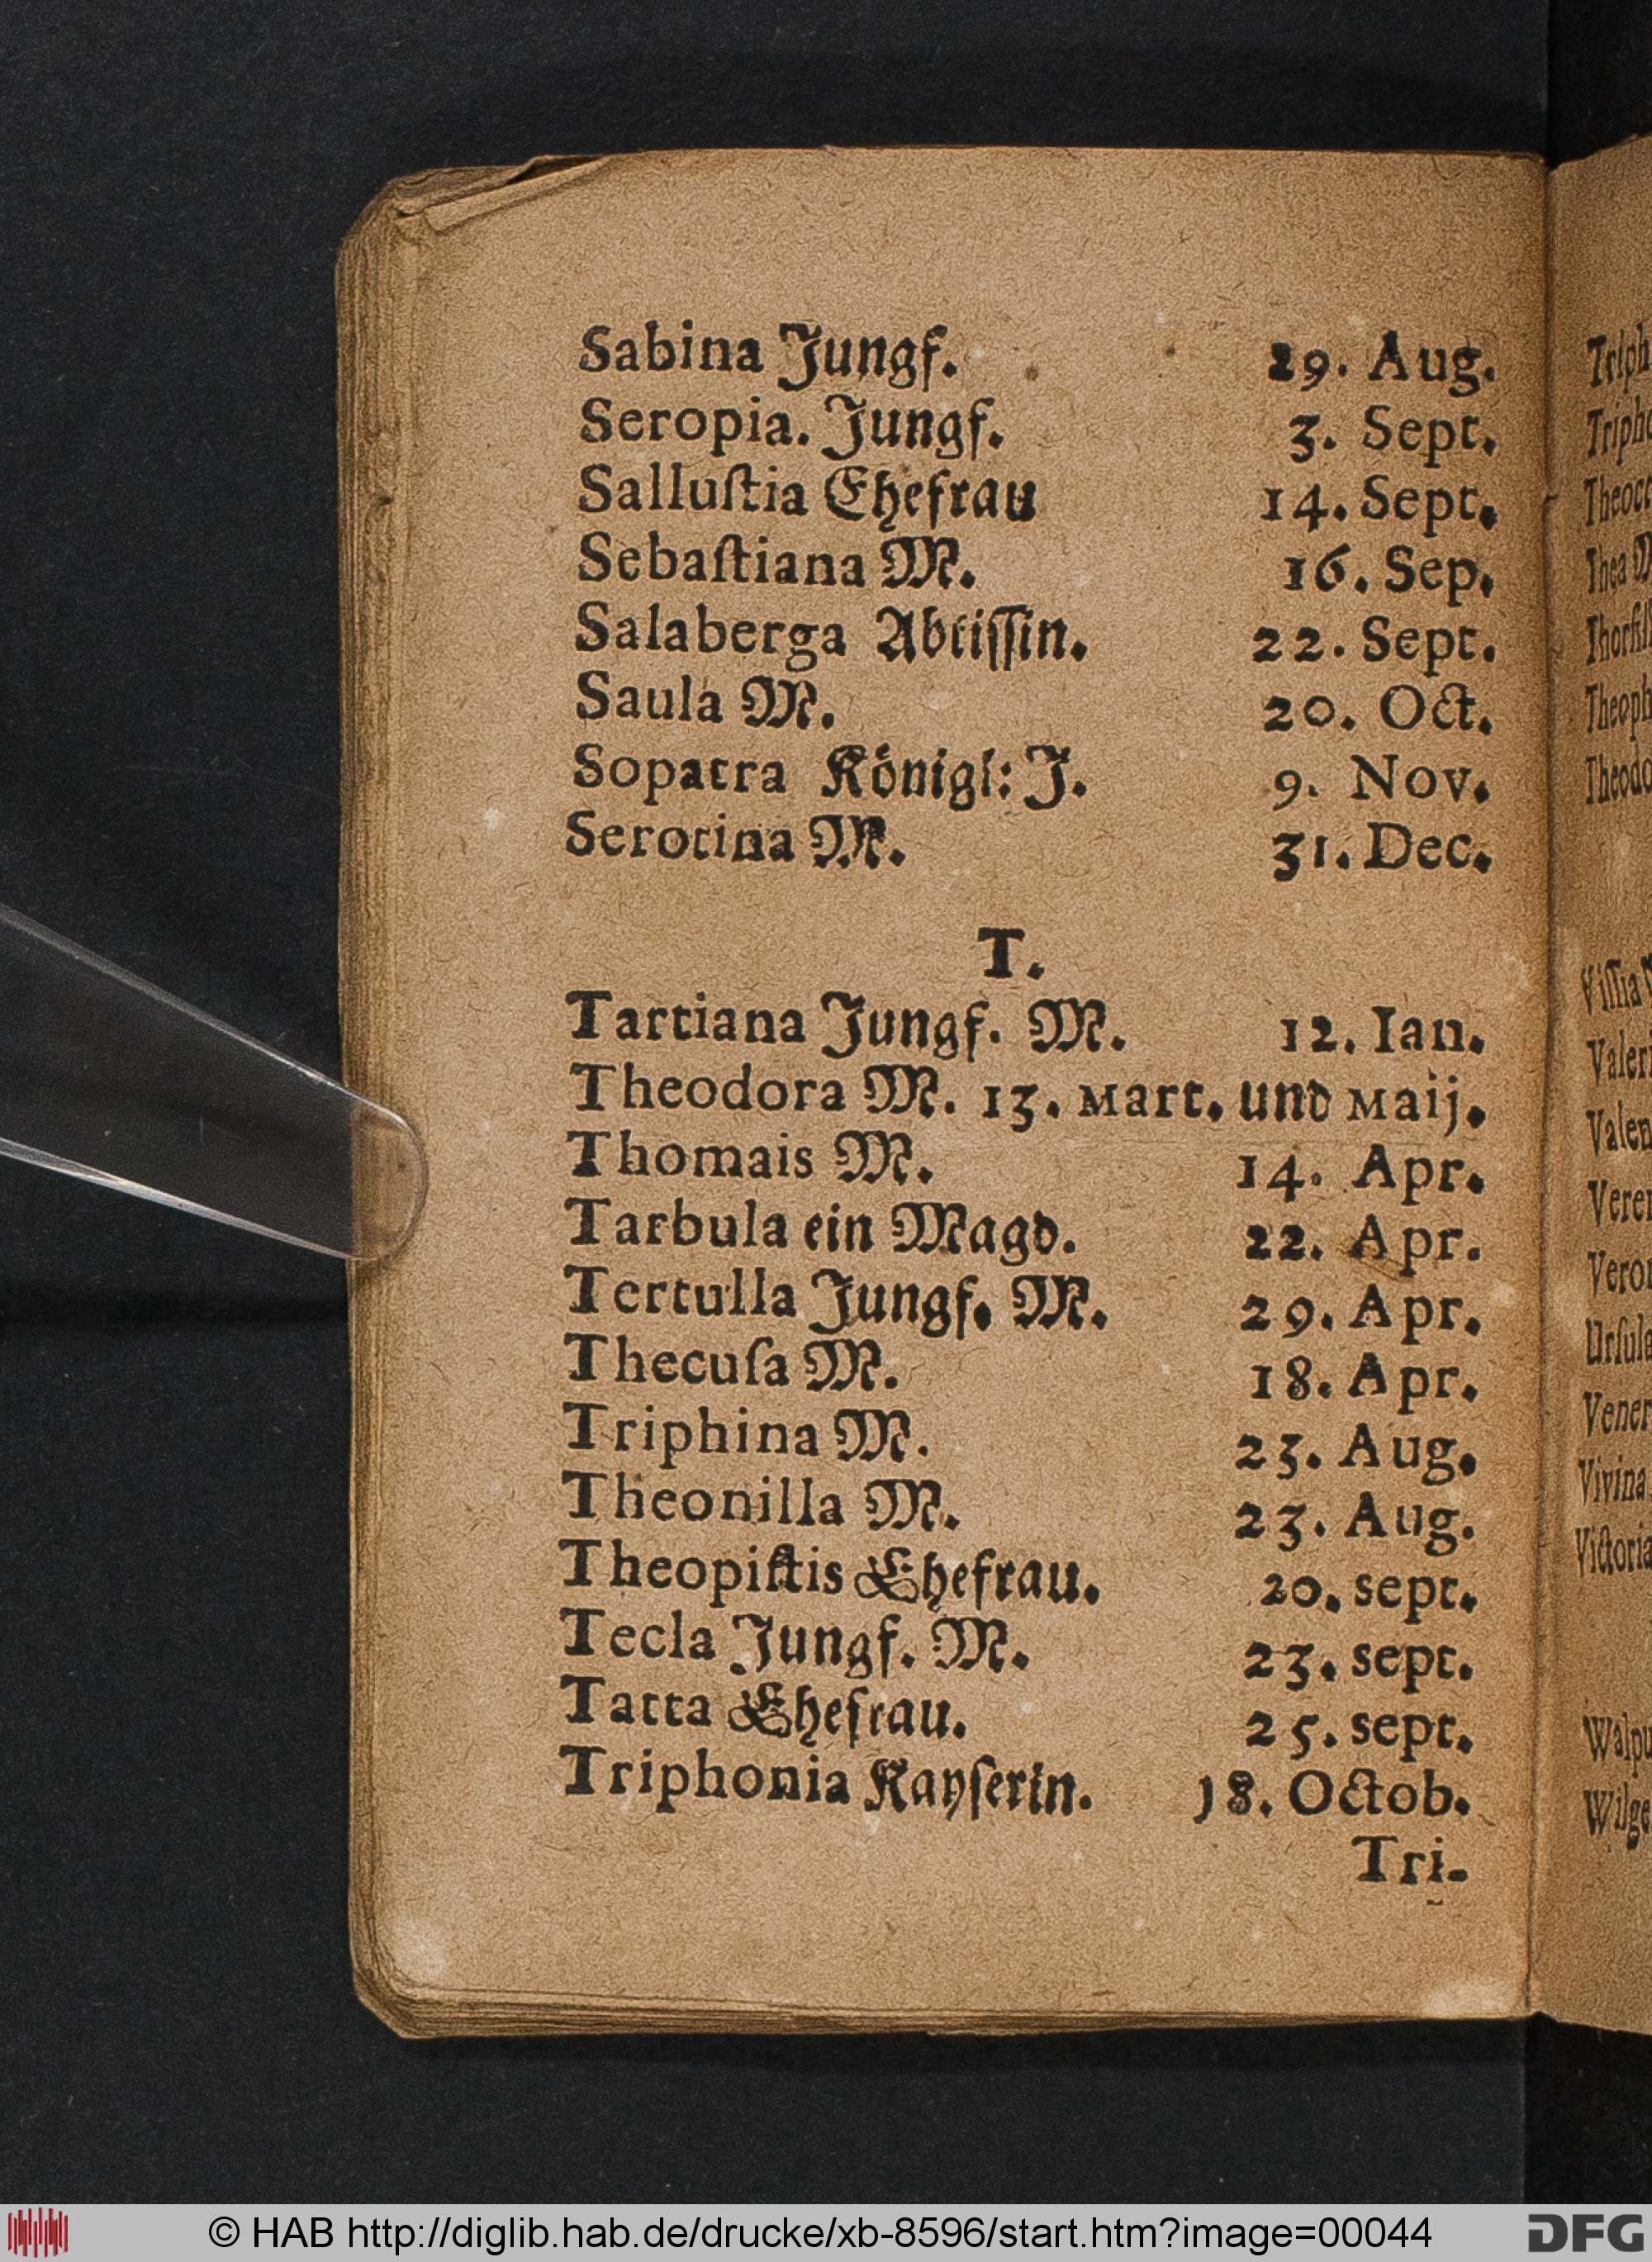 Sabina Jungf. 29. Aug.
Seropia. Jungf. 3. Sept.
Salluſtia Ehefrau 14. Sept.
Sebaſtiana M. 16. Sep.
Salaberga Abtiſſin. 22. Sept.
Saula M. 20. Oct.
Sopatra Königl: J. 9. Nov.
Serotina M. 31. Dec.
T.
Tartiana Jungf. M. 12. Ian.
Theodora M. 13. Mart. und Maij.
Thomais M. 14. Apr.
Tarbula ein Magd. 22. Apr.
Tertulla Jungf. M. 29. Apr.
Thecuſa M. 18. Apr.
Triphina M. 23. Aug.
Theonilla M. 23. Aug.
Theopiſtis Ehefrau. 20. sept.
Tecla Jungf. M. 23. sept.
Tatta Ehefrau. 25. sept.
Triphonia Kayſerin. 18. Octob.
Tri-
Triph
Theoph
Theodo
Valer
Valen
Veron
Urſula
Vener
Vivina
Victoria
Walpu
Wilge
© HAB http://diglib.hab.de/drucke/xb-8596/start.htm?image=00044
DFG